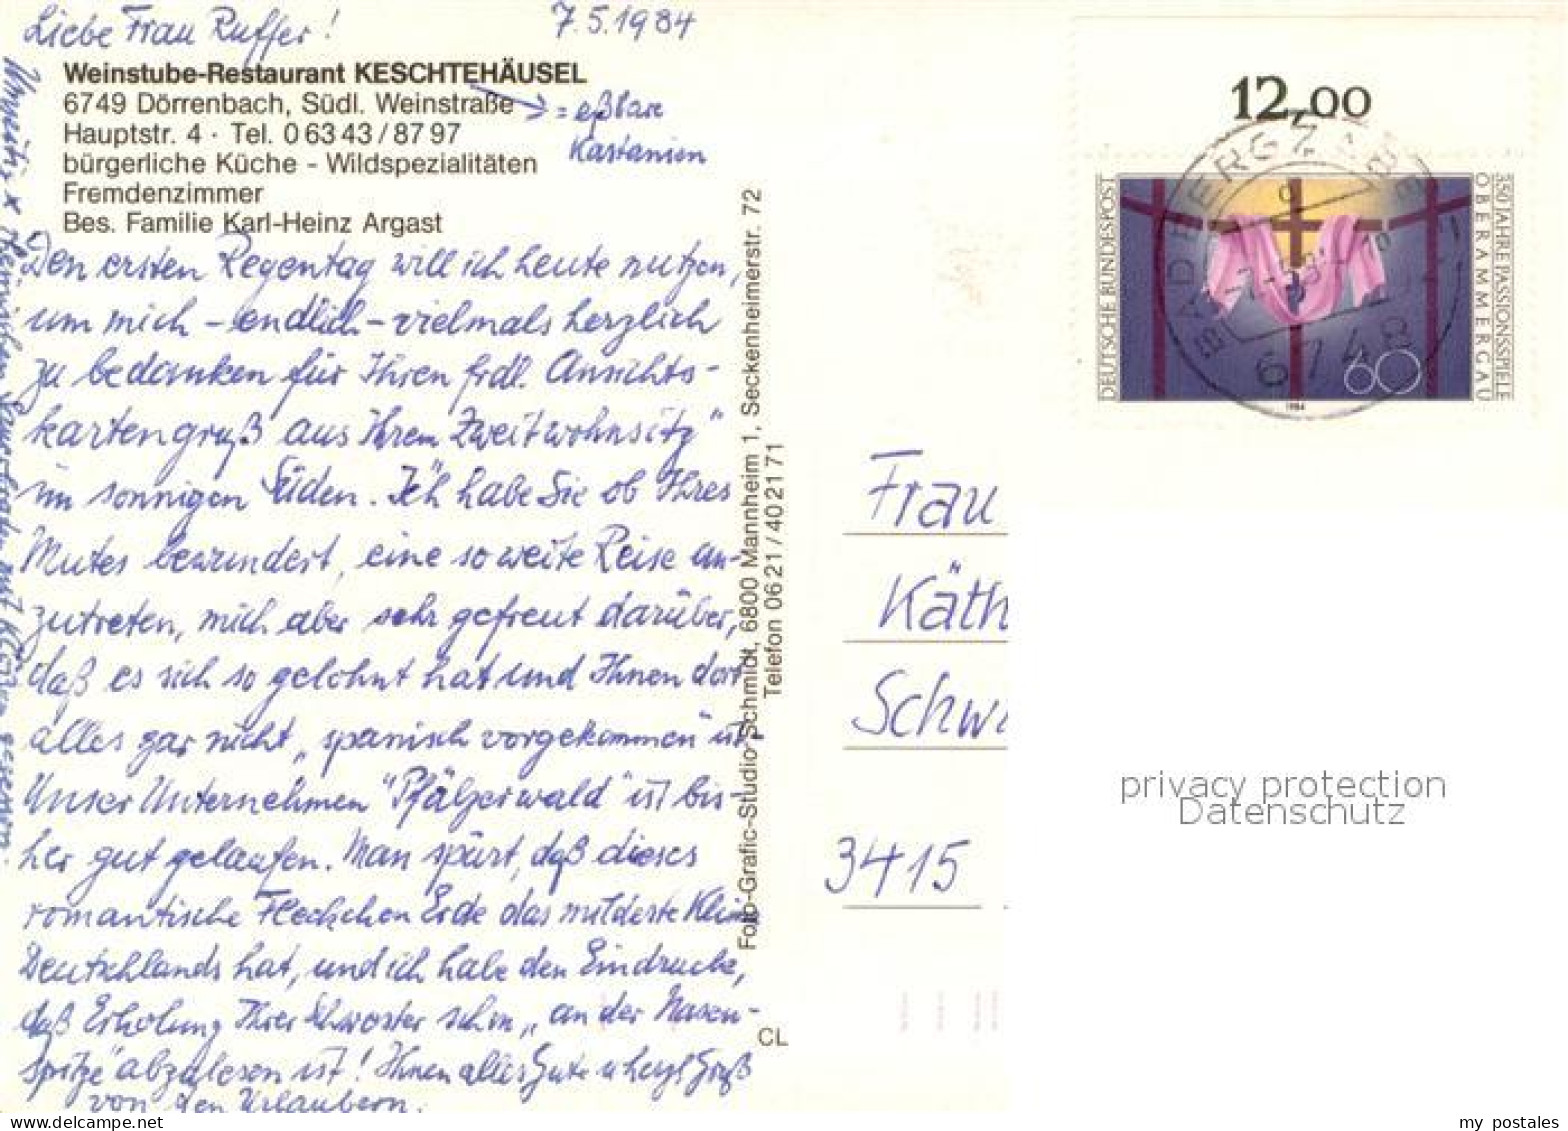 Liebe Frau Ruffer! 7.5.1984
Weinstube-Restaurant KESCHTEHÄUSEL
6749 Dörrenbach, Südl. Weinstraße
Hauptstr. 4 · Tel. 0 63 43 / 87 97
bürgerliche Küche - Wildspezialitäten
Fremdenzimmer
Bes. Familie Karl-Heinz Argast
= eßbare
Kastanien
Den ersten Regentag will ich heute nutzen,
um mich – endlich – vielmals herzlich
zu bedanken für Ihren frdl. Ansichts-
kartengruß aus Ihrem Zweitwohnsitz"
im sonnigen Süden. Ich habe Sie ob Ihres
Mutes bewundert, eine so weite Reise an-
zutreten, mich aber sehr gefreut darüber,
daß es sich so gelohnt hat und Ihnen dort
alles gar nicht „spanisch vorgekommen" ist.
Unser Unternehmen "Pfälzerwald" ist bis-
her gut gelaufen. Man spürt, daß dieses
romantische Fleckchen Erde das mildeste Klima
Deutschlands hat, und ich habe den Eindruck,
daß Erholung Ihrer Schwester schon „an der Nasen-
spitze" abzulesen ist! Ihnen alles Gute u herzl Gruß
von den Urlaubern.
Foto-Grafic-Studio Schmidt, 6800 Mannheim 1, Seckenheimerstr. 72
Telefon 06 21 / 40 21 71
CL
12,00
DEUTSCHE BUNDESPOST
350 JAHRE PASSIONSSPIELE
OBERAMMERGAU
60
1984
BAD BERGZABERN
6748
Frau
Käth
Schwi
3415
privacy protection
Datenschutz
my postales